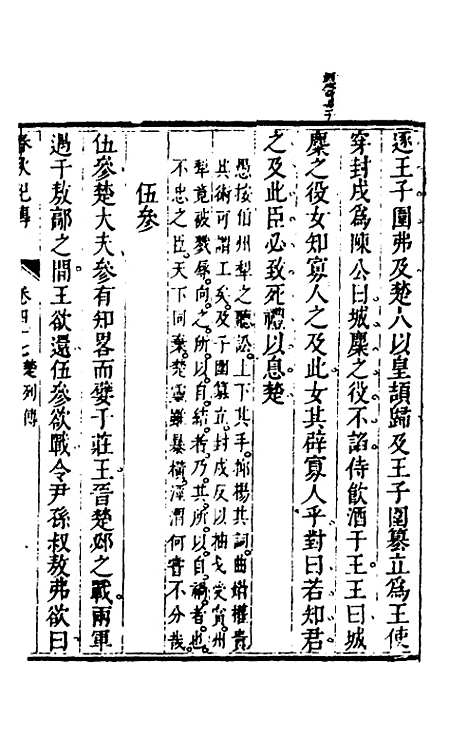 逐王子圍弗及楚人以皇頡歸及王子圍篡立爲王使
穿封戌爲陳公曰城麇之役不諂侍飮酒于王王曰城
麇之役女知寡人之及此女其辟寡人乎對曰若知君
之及此臣必致死禮以息楚
愚按伯州犁之聽訟上下其手抑揚其詞曲媚權貴
其術可謂工矣及子圍篡立封戌反以抽戈受賞州
犁竟被戮辱向之所以自結者乃其所以自禍者也
不忠之臣天下同棄楚靈雖暴橫涇渭何嘗不分哉
伍參
伍參楚大夫參有知畧而嬖于莊王晉楚邲之戰兩軍
過于敖鄗之間王欲還伍參欲戰令尹孫叔敖弗欲曰
春秋紀傳
卷四十七楚列傳